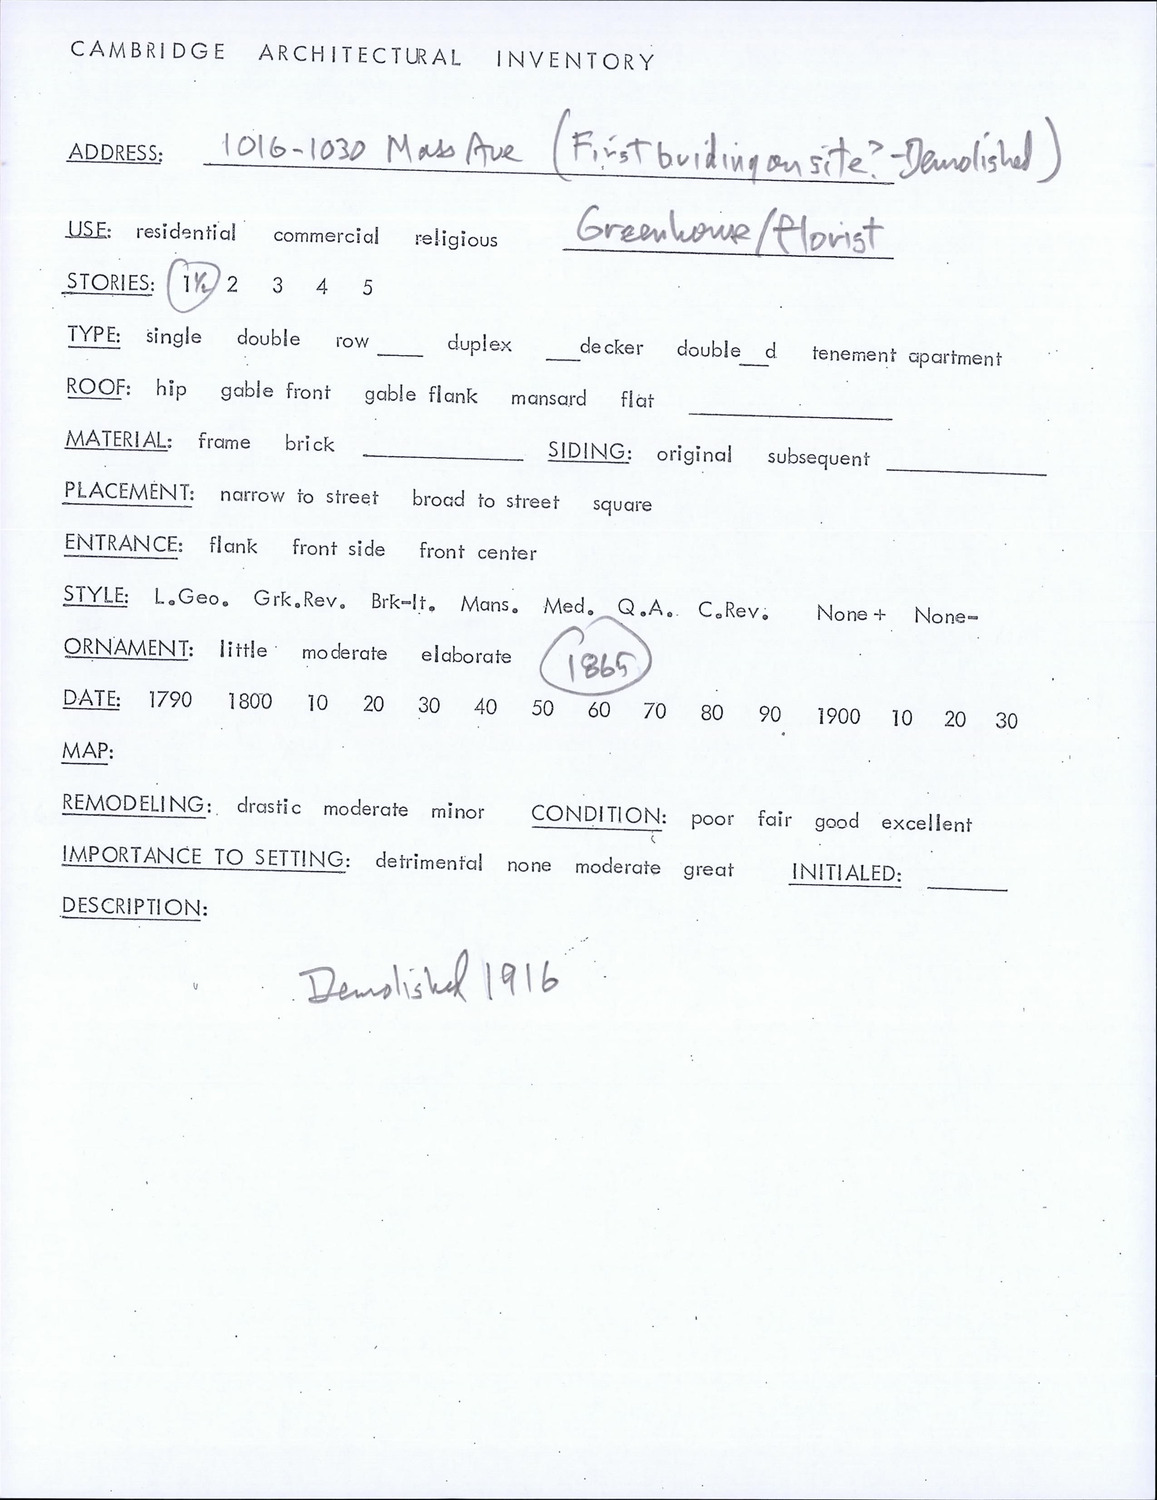 CAMBRIDGE ARCHITECTURAL INVENTORY
ADDRESS: 1016-1030 Mass Ave (First buiding on site? - Demolished)
USE: residential commercial religious Greenhouse/florist
STORIES: 1½ 2 3 4 5
TYPE: single double row ____ duplex ___decker double__d tenement apartment
ROOF: hip gable front gable flank mansard flat ____
MATERIAL: frame brick ____ SIDING: original subsequent ____
PLACEMENT: narrow to street broad to street square
ENTRANCE: flank front side front center
STYLE: L.Geo. Grk.Rev. Brk-It. Mans. Med. Q.A. C.Rev. None+ None-
ORNAMENT: little moderate elaborate 1865
DATE: 1790 1800 10 20 30 40 50 60 70 80 90 1900 10 20 30
MAP:
REMODELING: drastic moderate minor CONDITION: poor fair good excellent
IMPORTANCE TO SETTING: detrimental none moderate great INITIALED: ____
DESCRIPTION:
Demolished 1916